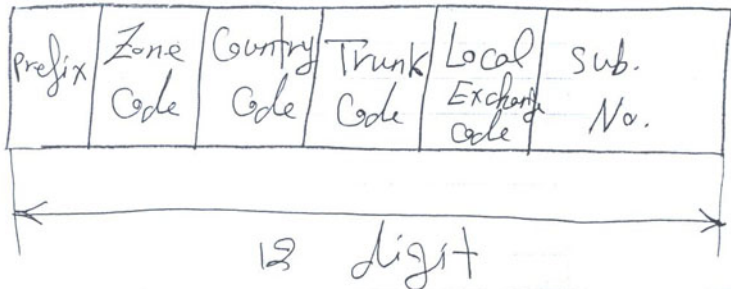 Prefix
Zone
Code
Country
Code
Trunk
Code
Local
Exchange
code
Sub.
No.
12 digit